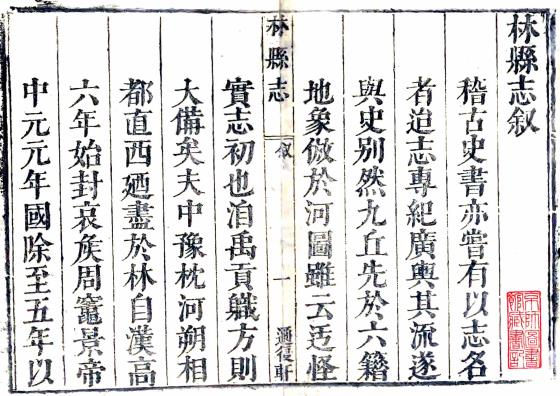 林縣志叙
稽古史書亦嘗有以志名
者迨志專紀廣輿其流遂
與史别然九丘先於六籍
地象倣於河圖雖云迃怪
林縣志 叙 一 復軒
實志初也洎禹貢職方則
大備矣夫中豫枕河朔相
都直西廼盡於林自漢高
六年始封哀矦周竈景帝
中元元年國除至五年以
京師圖書
館藏書記